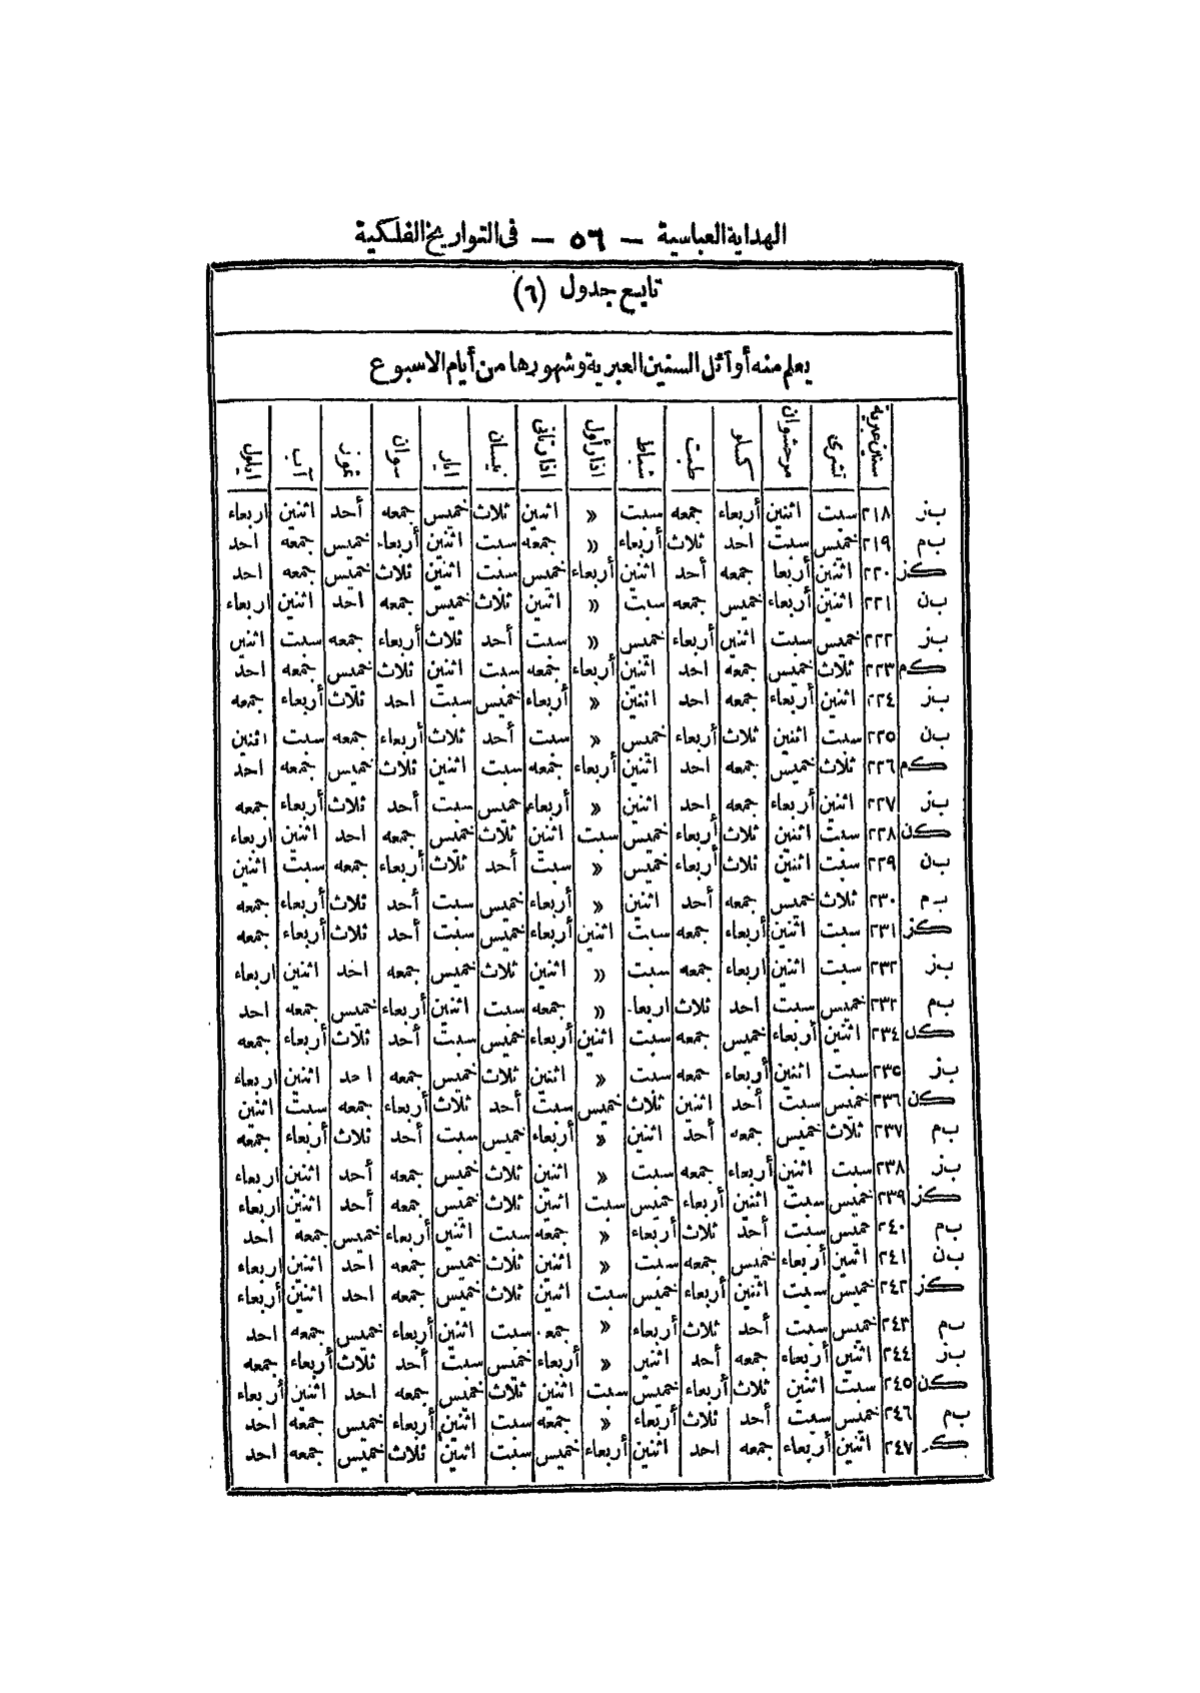 الهداية العباسية — ٥٦ — فى التواريخ الفلكية
تابع جدول (٦)
يعلم منه أوائل السنين العبرية وشهورها من أيام الاسبوع
سنين عبرية تشرى مرحشوان كسلو طبت شباط اذار أول اذار ثانى نيسان ايار سوان تموز آب ايلول
بز ٢١٨ سبت اثنين أربعاء جمعه سبت » اثنين ثلاث خميس جمعه أحد اثنين اربعاء
بم ٢١٩ خميس سبت احد ثلاث أربعاء » جمعه سبت اثنين أربعاء خميس جمعه احد
كز ٢٢٠ اثنين أربعا جمعه أحد اثنين أربعاء خميس سبت اثنين ثلاث خميس جمعه احد
بن ٢٢١ اثنين أربعاء خميس جمعه سبت » اثنين ثلاث خميس جمعه احد اثنين اربعاء
بز ٢٢٢ خميس سبت اثنين أربعاء خميس » سبت أحد ثلاث أربعاء جمعه سبت اثنين
كم ٢٢٣ ثلاث خميس جمعه احد اثنين أربعاء جمعه سبت اثنين ثلاث خميس جمعه احد
بز ٢٢٤ اثنين أربعاء جمعه احد اثنين » أربعاء خميس سبت احد ثلاث أربعاء جمعه
بن ٢٢٥ سبت اثنين ثلاث أربعاء خميس » سبت أحد ثلاث أربعاء جمعه سبت اثنين
كم ٢٢٦ ثلاث خميس جمعه احد اثنين أربعاء جمعه سبت اثنين ثلاث خميس جمعه احد
بز ٢٢٧ اثنين أربعاء جمعه احد اثنين » أربعاء خميس سبت أحد ثلاث أربعاء جمعه
كن ٢٢٨ سبت اثنين ثلاث أربعاء خميس سبت اثنين ثلاث خميس جمعه احد اثنين اربعاء
بن ٢٢٩ سبت اثنين ثلاث أربعاء خميس » سبت أحد ثلاث أربعاء جمعه سبت اثنين
بم ٢٣٠ ثلاث خميس جمعه أحد اثنين » أربعاء خميس سبت أحد ثلاث أربعاء جمعه
كز ٢٣١ سبت اثنين أربعاء جمعه سبت اثنين أربعاء خميس سبت أحد ثلاث أربعاء جمعه
بز ٢٣٢ سبت اثنين اربعاء جمعه سبت » اثنين ثلاث خميس جمعه احد اثنين اربعاء
بم ٢٣٣ خميس سبت احد ثلاث اربعا » جمعه سبت اثنين أربعاء خميس جمعه احد
كن ٢٣٤ اثنين أربعاء خميس جمعه سبت اثنين أربعاء خميس سبت أحد ثلاث أربعاء جمعه
بز ٢٣٥ سبت اثنين أربعاء جمعه سبت » اثنين ثلاث خميس جمعه احد اثنين اربعاء
كن ٢٣٦ خميس سبت أحد اثنين ثلاث خميس سبت أحد ثلاث أربعاء جمعه سبت اثنين
بم ٢٣٧ ثلاث خميس جمعه أحد اثنين » أربعاء خميس سبت أحد ثلاث أربعاء جمعه
بز ٢٣٨ سبت اثنين أربعاء جمعه سبت » اثنين ثلاث خميس جمعه أحد اثنين اربعاء
كز ٢٣٩ خميس سبت اثنين أربعاء خميس سبت اثنين ثلاث خميس جمعه أحد اثنين اربعاء
بم ٢٤٠ خميس سبت أحد ثلاث أربعاء » جمعه سبت اثنين أربعاء خميس جمعه احد
بن ٢٤١ اثنين أربعاء خميس جمعه سبت » اثنين ثلاث خميس جمعه احد اثنين اربعاء
كز ٢٤٢ خميس سبت اثنين أربعاء خميس سبت اثنين ثلاث خميس جمعه احد اثنين أربعاء
بم ٢٤٣ خميس سبت أحد ثلاث أربعاء » جمعه سبت اثنين أربعاء خميس جمعه احد
بز ٢٤٤ اثنين أربعاء جمعه أحد اثنين » أربعاء خميس سبت أحد ثلاث أربعاء جمعه
كن ٢٤٥ سبت اثنين ثلاث أربعاء خميس سبت اثنين ثلاث خميس جمعه احد اثنين أربعاء
بم ٢٤٦ خميس سبت أحد ثلاث أربعاء » جمعه سبت اثنين أربعاء خميس جمعه احد
كز ٢٤٧ اثنين أربعاء جمعه احد اثنين أربعاء خميس سبت اثنين ثلاث خميس جمعه احد